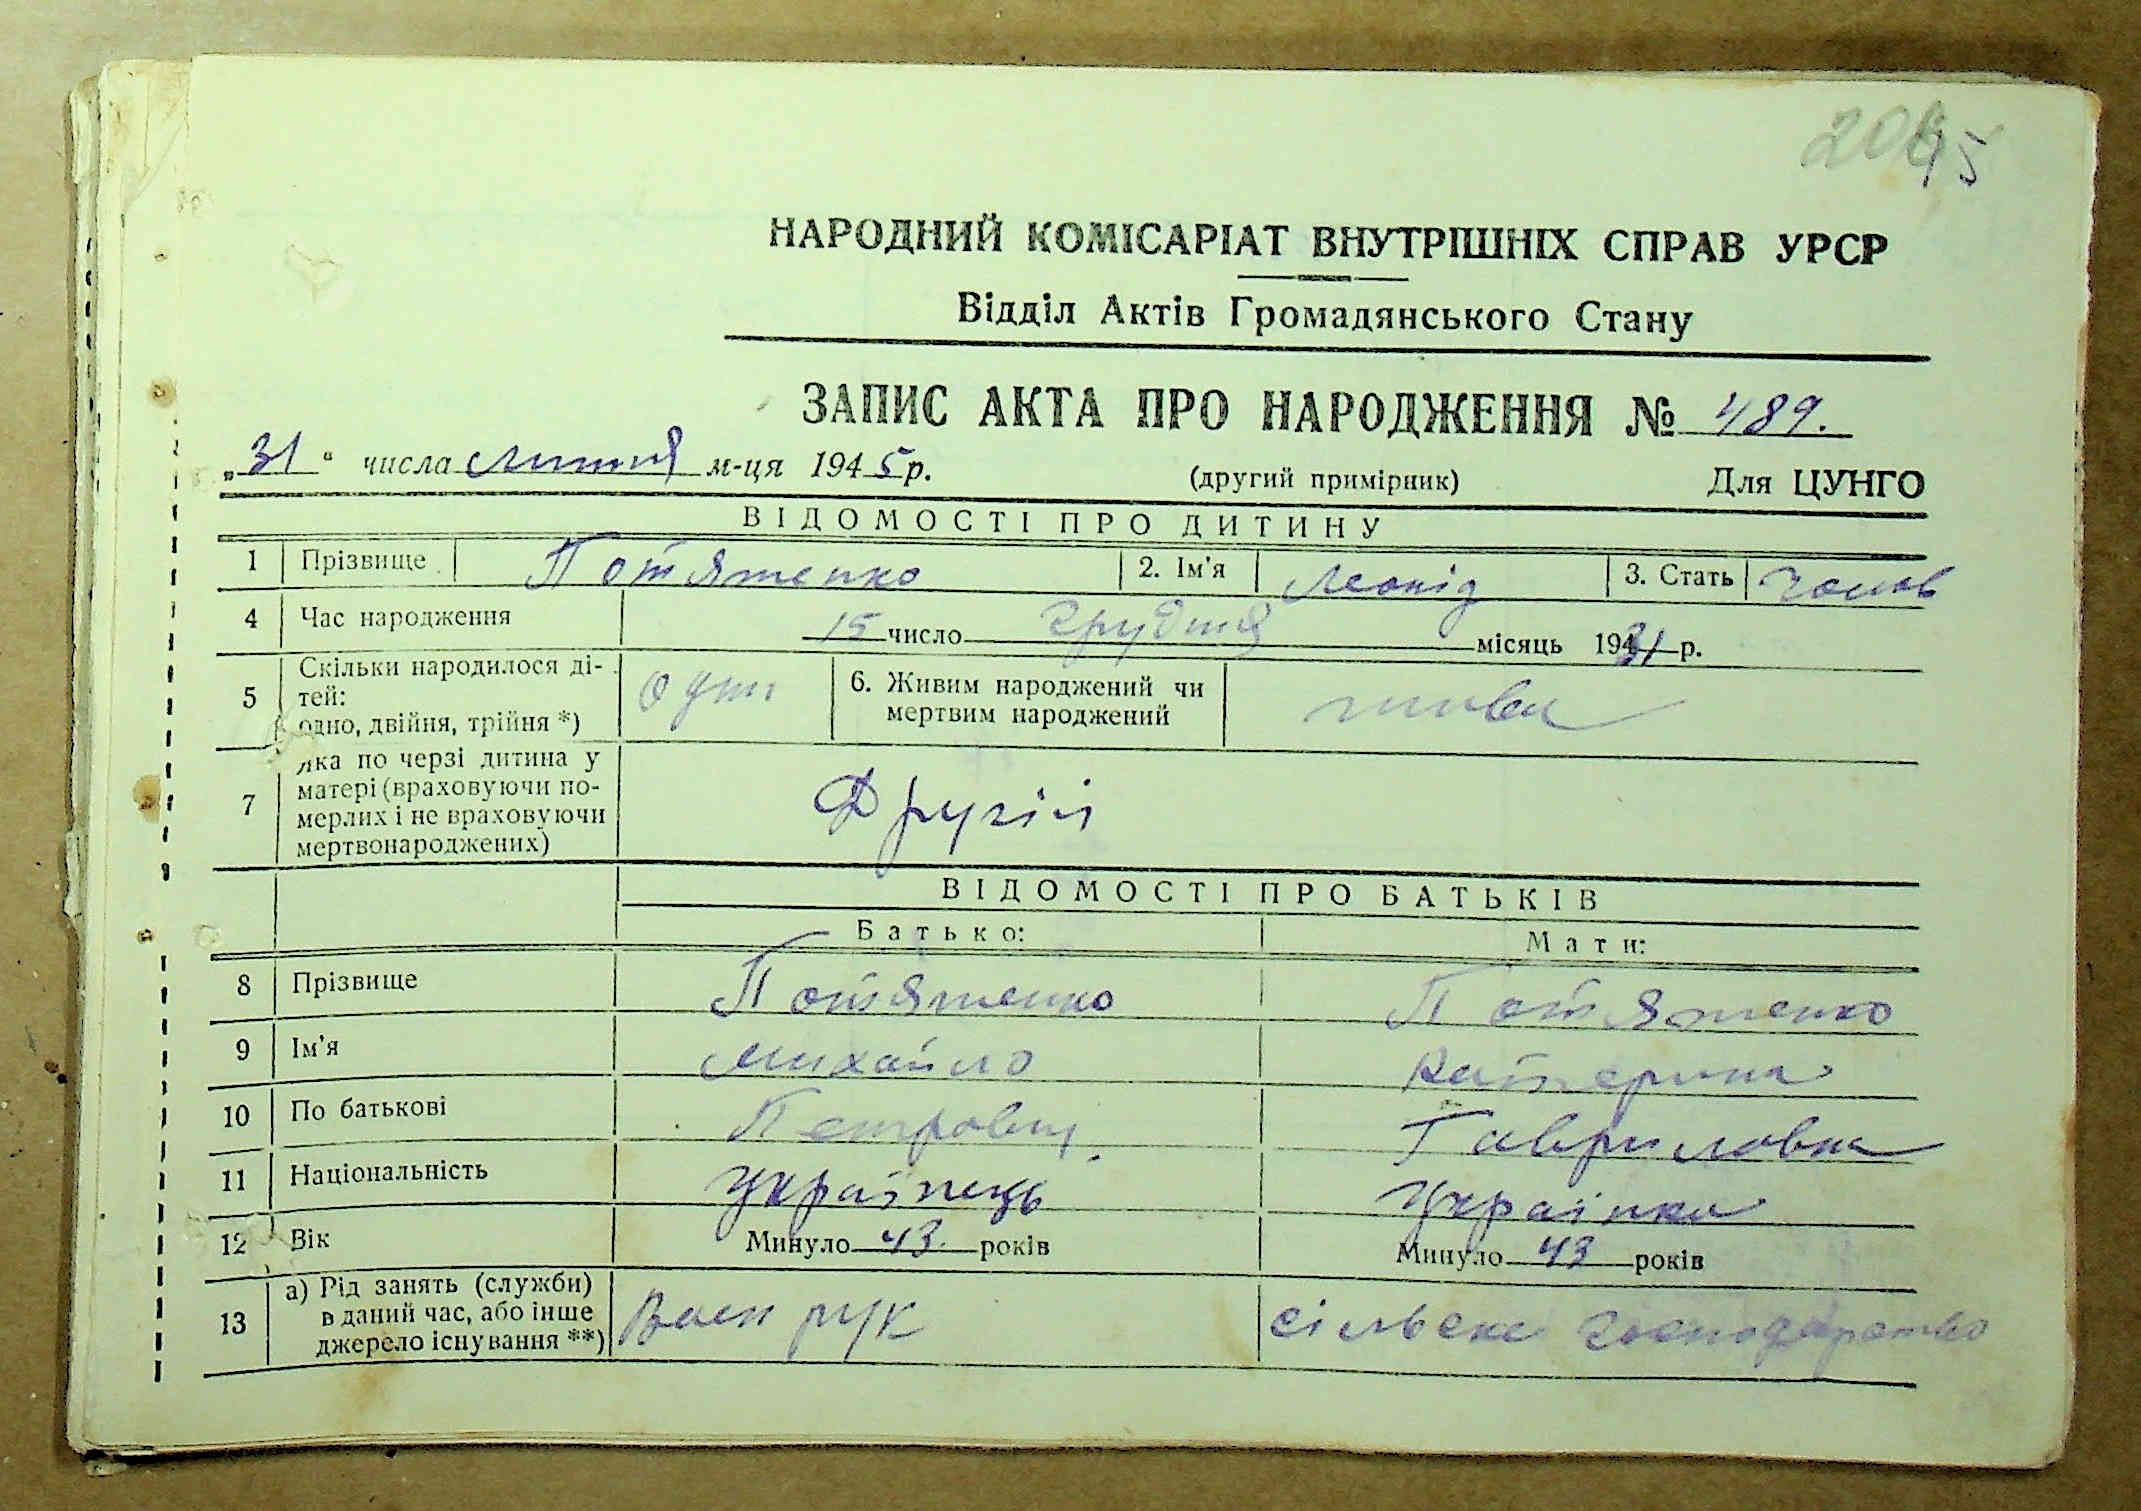 НАРОДНИЙ КОМІСАРІАТ ВНУТРІШНІХ СПРАВ УРСР
Відділ Актів Громадянського Стану
ЗАПИС АКТА ПРО НАРОДЖЕННЯ № 489.
„31“ числа липня м-ця 1945 р. (другий примірник) Для ЦУНГО
ВІДОМОСТІ ПРО ДИТИНУ
1 Прізвище Потятенко 2. Ім'я Леонід 3. Стать чолов
4 Час народження 15 число грудня місяць 1931 р.
5 Скільки народилося ді-
тей:
одно, двійня, трійня *) один 6. Живим народжений чи
мертвим народжений живим
7 яка по черзі дитина у
матері (враховуючи по-
мерлих і не враховуючи
мертвонароджених) Другій
ВІДОМОСТІ ПРО БАТЬКІВ
Батько: Мати:
8 Прізвище Потятенко Потятенко
9 Ім'я Михайло Катерина
10 По батькові Петрович Гавриловна
11 Національність Українець Українка
12 Вік Минуло 43 років Минуло 43 років
13 а) Рід занять (служби)
в даний час, або інше
джерело існування **) Воен рук сільске господарство